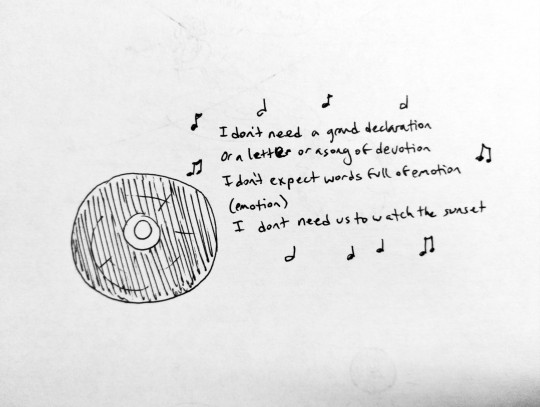 I don't need a grand declaration
Or a letter or a song of devotion
I don't expect words full of emotion
(emotion)
I dont need us to watch the sunset